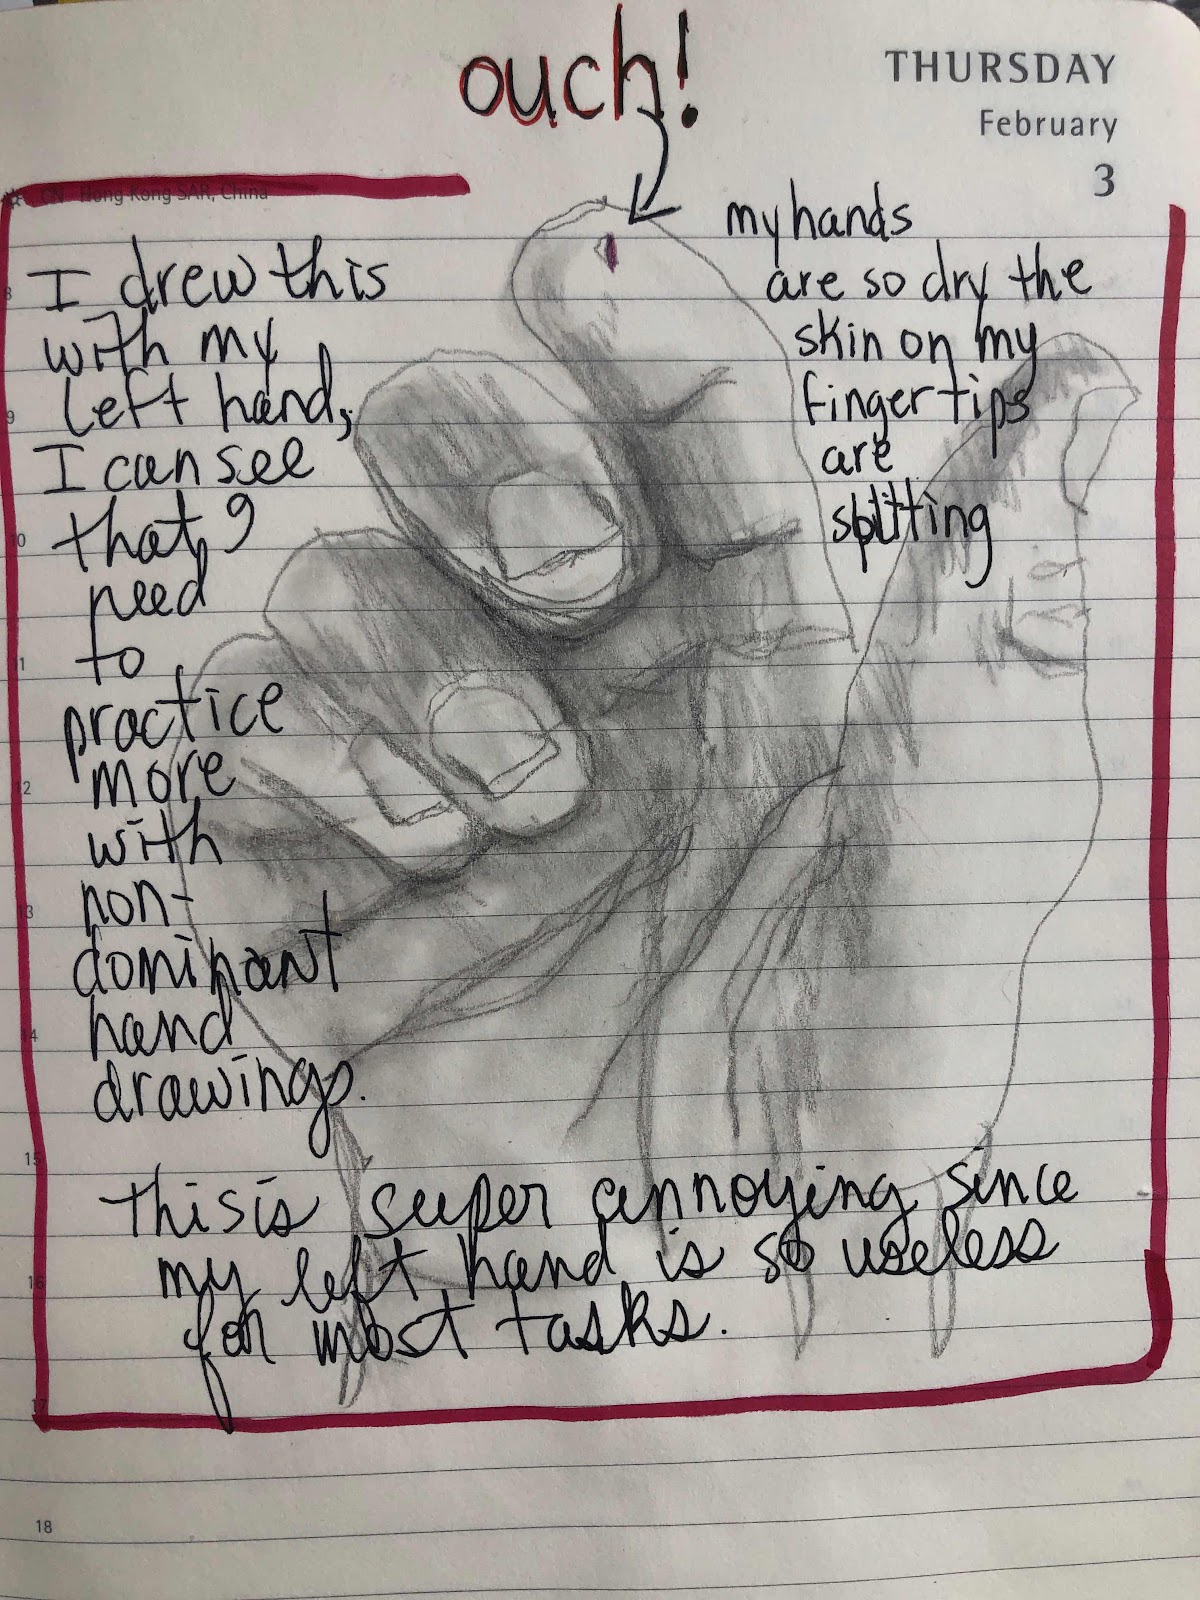 ouch!
THURSDAY
February
3
CN Hong Kong SAR, China
my hands
are so dry the
skin on my
fingertips
are
splitting
I drew this
with my
left hand,
I can see
that I
need
to
practice
more
with
non-
dominant
hand
drawings.
this is super annoying since
my left hand is so useless
for most tasks.
8
9
10
11
12
13
14
15
16
17
18